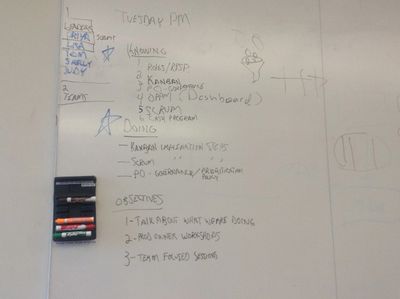 TUESDAY PM
1
LEADERS
LISA
TOM
SHELLY
JUDY
SUBMIT
2
TEAMS
KNOWING
1 ROLES/RESP.
2 KANBAN
3
4 OPPM (Dashboard)
5 SCRUM
6 CASH PROGRAM
DOING
— KANBAN IMPLEMENTATION STEPS
— SCRUM " "
— PO - GOVERNANCE/PRIORITIZATION POLICY
OBJECTIVES
1 - TALK ABOUT WHAT WE ARE DOING
2 - PROD OWNER WORKSHOPS
3 - TEAM FOCUSED SESSIONS